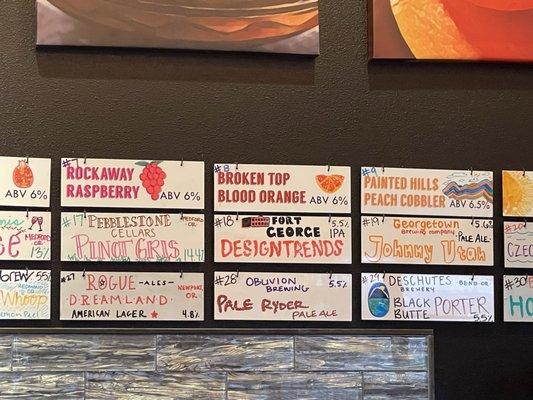 ABV 6%
#7
ROCKAWAY
RASPBERRY
ABV 6%
#8
BROKEN TOP
BLOOD ORANGE
ABV 6%
#9
PAINTED HILLS
PEACH COBBLER
ABV 6.5%
MEDFORD
OR
13%
#17
PEBBLESTONE
CELLARS
MEDFORD
OR
PINOT GRIS
14.4%
#18
FORT
GEORGE
5.5%
IPA
DESIGNTRENDS
#19
Georgetown
Brewing company
5.6%
PALE ALE
Johnny Utah
#20
CZECH
BREW
5.5%
Whoop
#27
ROGUE -ALES-
NEWPORT,
OR
DREAMLAND
AMERICAN LAGER
4.8%
#28
OBLIVION
BREWING
5.5%
PALE RYDER
PALE ALE
#29
DESCHUTES
BREWERY
BEND OR
BLACK
BUTTE
PORTER
5.5%
#30